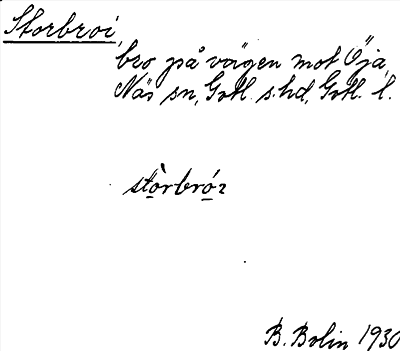 Storbroi,
bro på vägen mot Öja,
Näs sn, Gotl. s. hd, Gotl. l.
stòrbróı
B. Bolin 1930